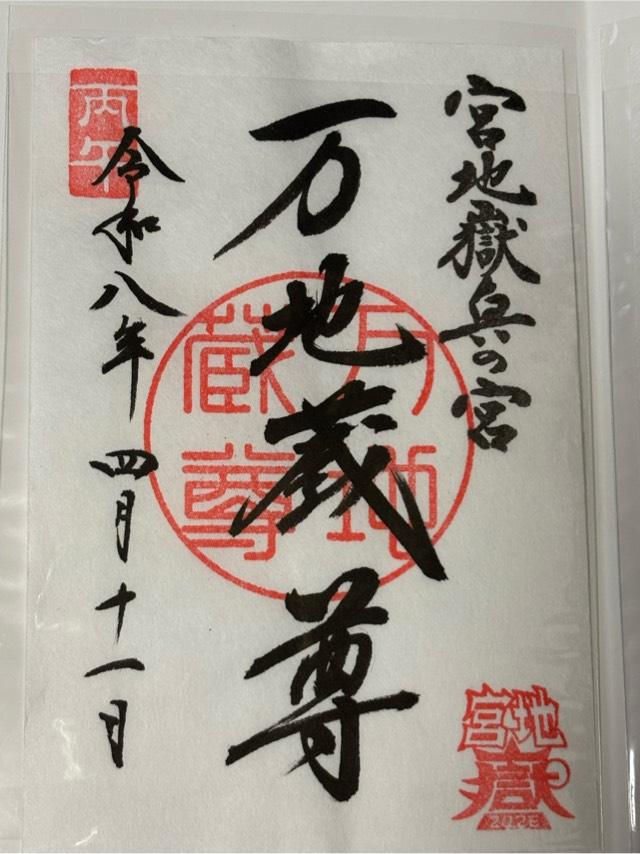 宮地嶽奥の宮
万地蔵尊
万地蔵尊
丙午
令和八年 四月十一日
宮地
嶽
2026